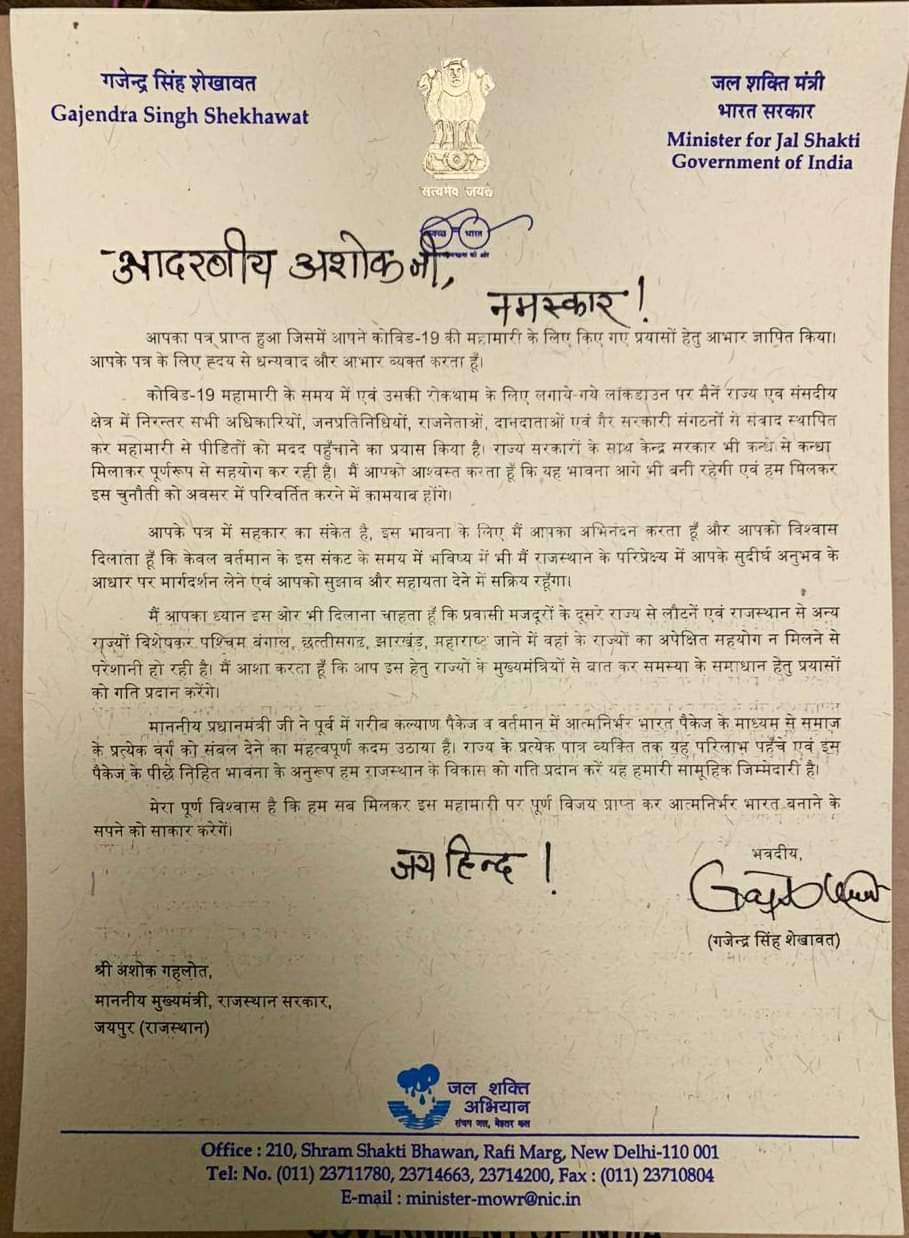 गजेन्द्र सिंह शेखावत
Gajendra Singh Shekhawat
सत्यमेव जयते
जल शक्ति मंत्री
भारत सरकार
Minister for Jal Shakti
Government of India
स्वच्छ भारत
आदरणीय अशोक जी,
नमस्कार !
आपका पत्र प्राप्त हुआ जिसमें आपने कोविड-19 की महामारी के लिए किए गए प्रयासों हेतु आभार ज्ञापित किया।
आपके पत्र के लिए हृदय से धन्यवाद और आभार व्यक्त करता हूँ।
कोविड-19 महामारी के समय में एवं उसकी रोकथाम के लिए लगाये-गये लॉकडाउन पर मैनें राज्य एव संसदीय
क्षेत्र में निरन्तर सभी अधिकारियों, जनप्रतिनिधियों, राजनेताओं, दानदाताओं एवं गैर सरकारी संगठनों से संवाद स्थापित
कर महामारी से पीडितों को मदद पहुँचाने का प्रयास किया है। राज्य सरकारों के साथ केन्द्र सरकार भी कन्धे से कन्धा
मिलाकर पूर्णरूप से सहयोग कर रही है। मैं आपको आश्वस्त करता हूँ कि यह भावना आगे भी बनी रहेगी एवं हम मिलकर
इस चुनौती को अवसर में परिवर्तित करने में कामयाब होंगे।
आपके पत्र में सहकार का संकेत है, इस भावना के लिए मैं आपका अभिनंदन करता हूँ और आपको विश्वास
दिलाता हूँ कि केवल वर्तमान के इस संकट के समय में भविष्य में भी मैं राजस्थान के परिप्रेक्ष्य में आपके सुदीर्घ अनुभव के
आधार पर मार्गदर्शन लेने एवं आपको सुझाव और सहायता देने में सक्रिय रहूँगा।
मैं आपका ध्यान इस ओर भी दिलाना चाहता हूँ कि प्रवासी मजदूरों के दूसरे राज्य से लौटनें एवं राजस्थान से अन्य
राज्यों विशेषकर पश्चिम बंगाल, छत्तीसगड, झारखंड, महाराष्ट जाने में वहां के राज्यों का अपेक्षित सहयोग न मिलने से
परेशानी हो रही है। मैं आशा करता हूँ कि आप इस हेतु राज्यों के मुख्यमंत्रियों से बात कर समस्या के समाधान हेतु प्रयासों
को गति प्रदान करेंगे।
माननीय प्रधानमंत्री जी ने पूर्व में गरीब कल्याण पैकेज व वर्तमान में आत्मनिर्भर भारत पैकेज के माध्यम से समाज
के प्रत्येक वर्ग को संबल देने का महत्वपूर्ण कदम उठाया है। राज्य के प्रत्येक पात्र व्यक्ति तक यह परिलाभ पहुँचे एवं इस
पैकेज के पीछे निहित भावना के अनुरूप हम राजस्थान के विकास को गति प्रदान करें यह हमारी सामूहिक जिम्मेदारी है।
मेरा पूर्ण विश्वास है कि हम सब मिलकर इस महामारी पर पूर्ण विजय प्राप्त कर आत्मनिर्भर भारत बनाने के
सपने को साकार करेगें।
जय हिन्द !
भवदीय,
(गजेन्द्र सिंह शेखावत)
श्री अशोक गहलोत,
माननीय मुख्यमंत्री, राजस्थान सरकार,
जयपुर (राजस्थान)
जल शक्ति
अभियान
संचय जल, बेहतर कल
Office : 210, Shram Shakti Bhawan, Rafi Marg, New Delhi-110 001
Tel: No. (011) 23711780, 23714663, 23714200, Fax : (011) 23710804
E-mail : minister-mowr@nic.in
GOVERNMENT OF INDIA